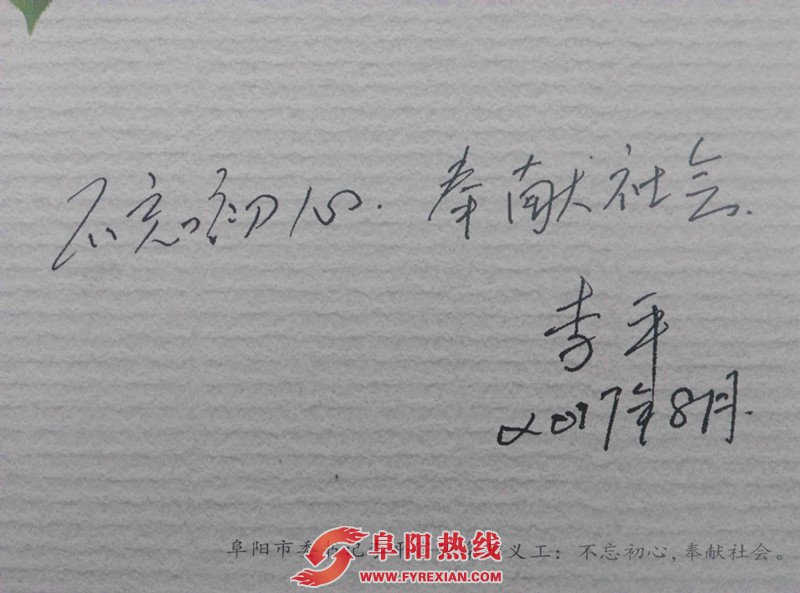 不忘初心.奉献社会.
李平
2017年8月.
阜阳市委书记李平 义工：不忘初心,奉献社会。
阜阳热线
WWW.FYREXIAN.COM